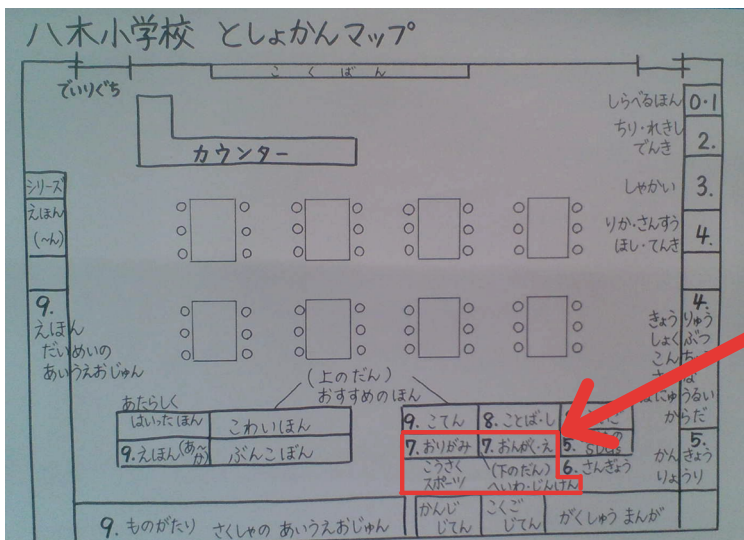 八木小学校 としょかんマップ
こくばん
でいりぐち
カウンター
しらべるほん 0・1
ちり・れきし
でんき 2.
しゃかい 3.
りか・さんすう
ほし・てんき 4.
シリーズ
えほん
(〜ん)
9.
えほん
だいめいの
あいうえおじゅん
4.
きょうりゅう
しょくぶつ
こん
うるい
からだ
5.
かんきょう
りょうり
(上のだん)
おすすめのほん
あたらしく
はいったほん
こわいほん
9.えほん(あ〜か)
ぶんこぼん
9. こてん
8. ことば・し
7. おりがみ
こうさく
スポーツ
7. おんがく・え
(下のだん)
へいわ・じんけん
5.
SDGs
6. さんぎょう
9. ものがたり さくしゃの あいうえおじゅん
かんじ
じてん
こくご
じてん
がくしゅう まんが